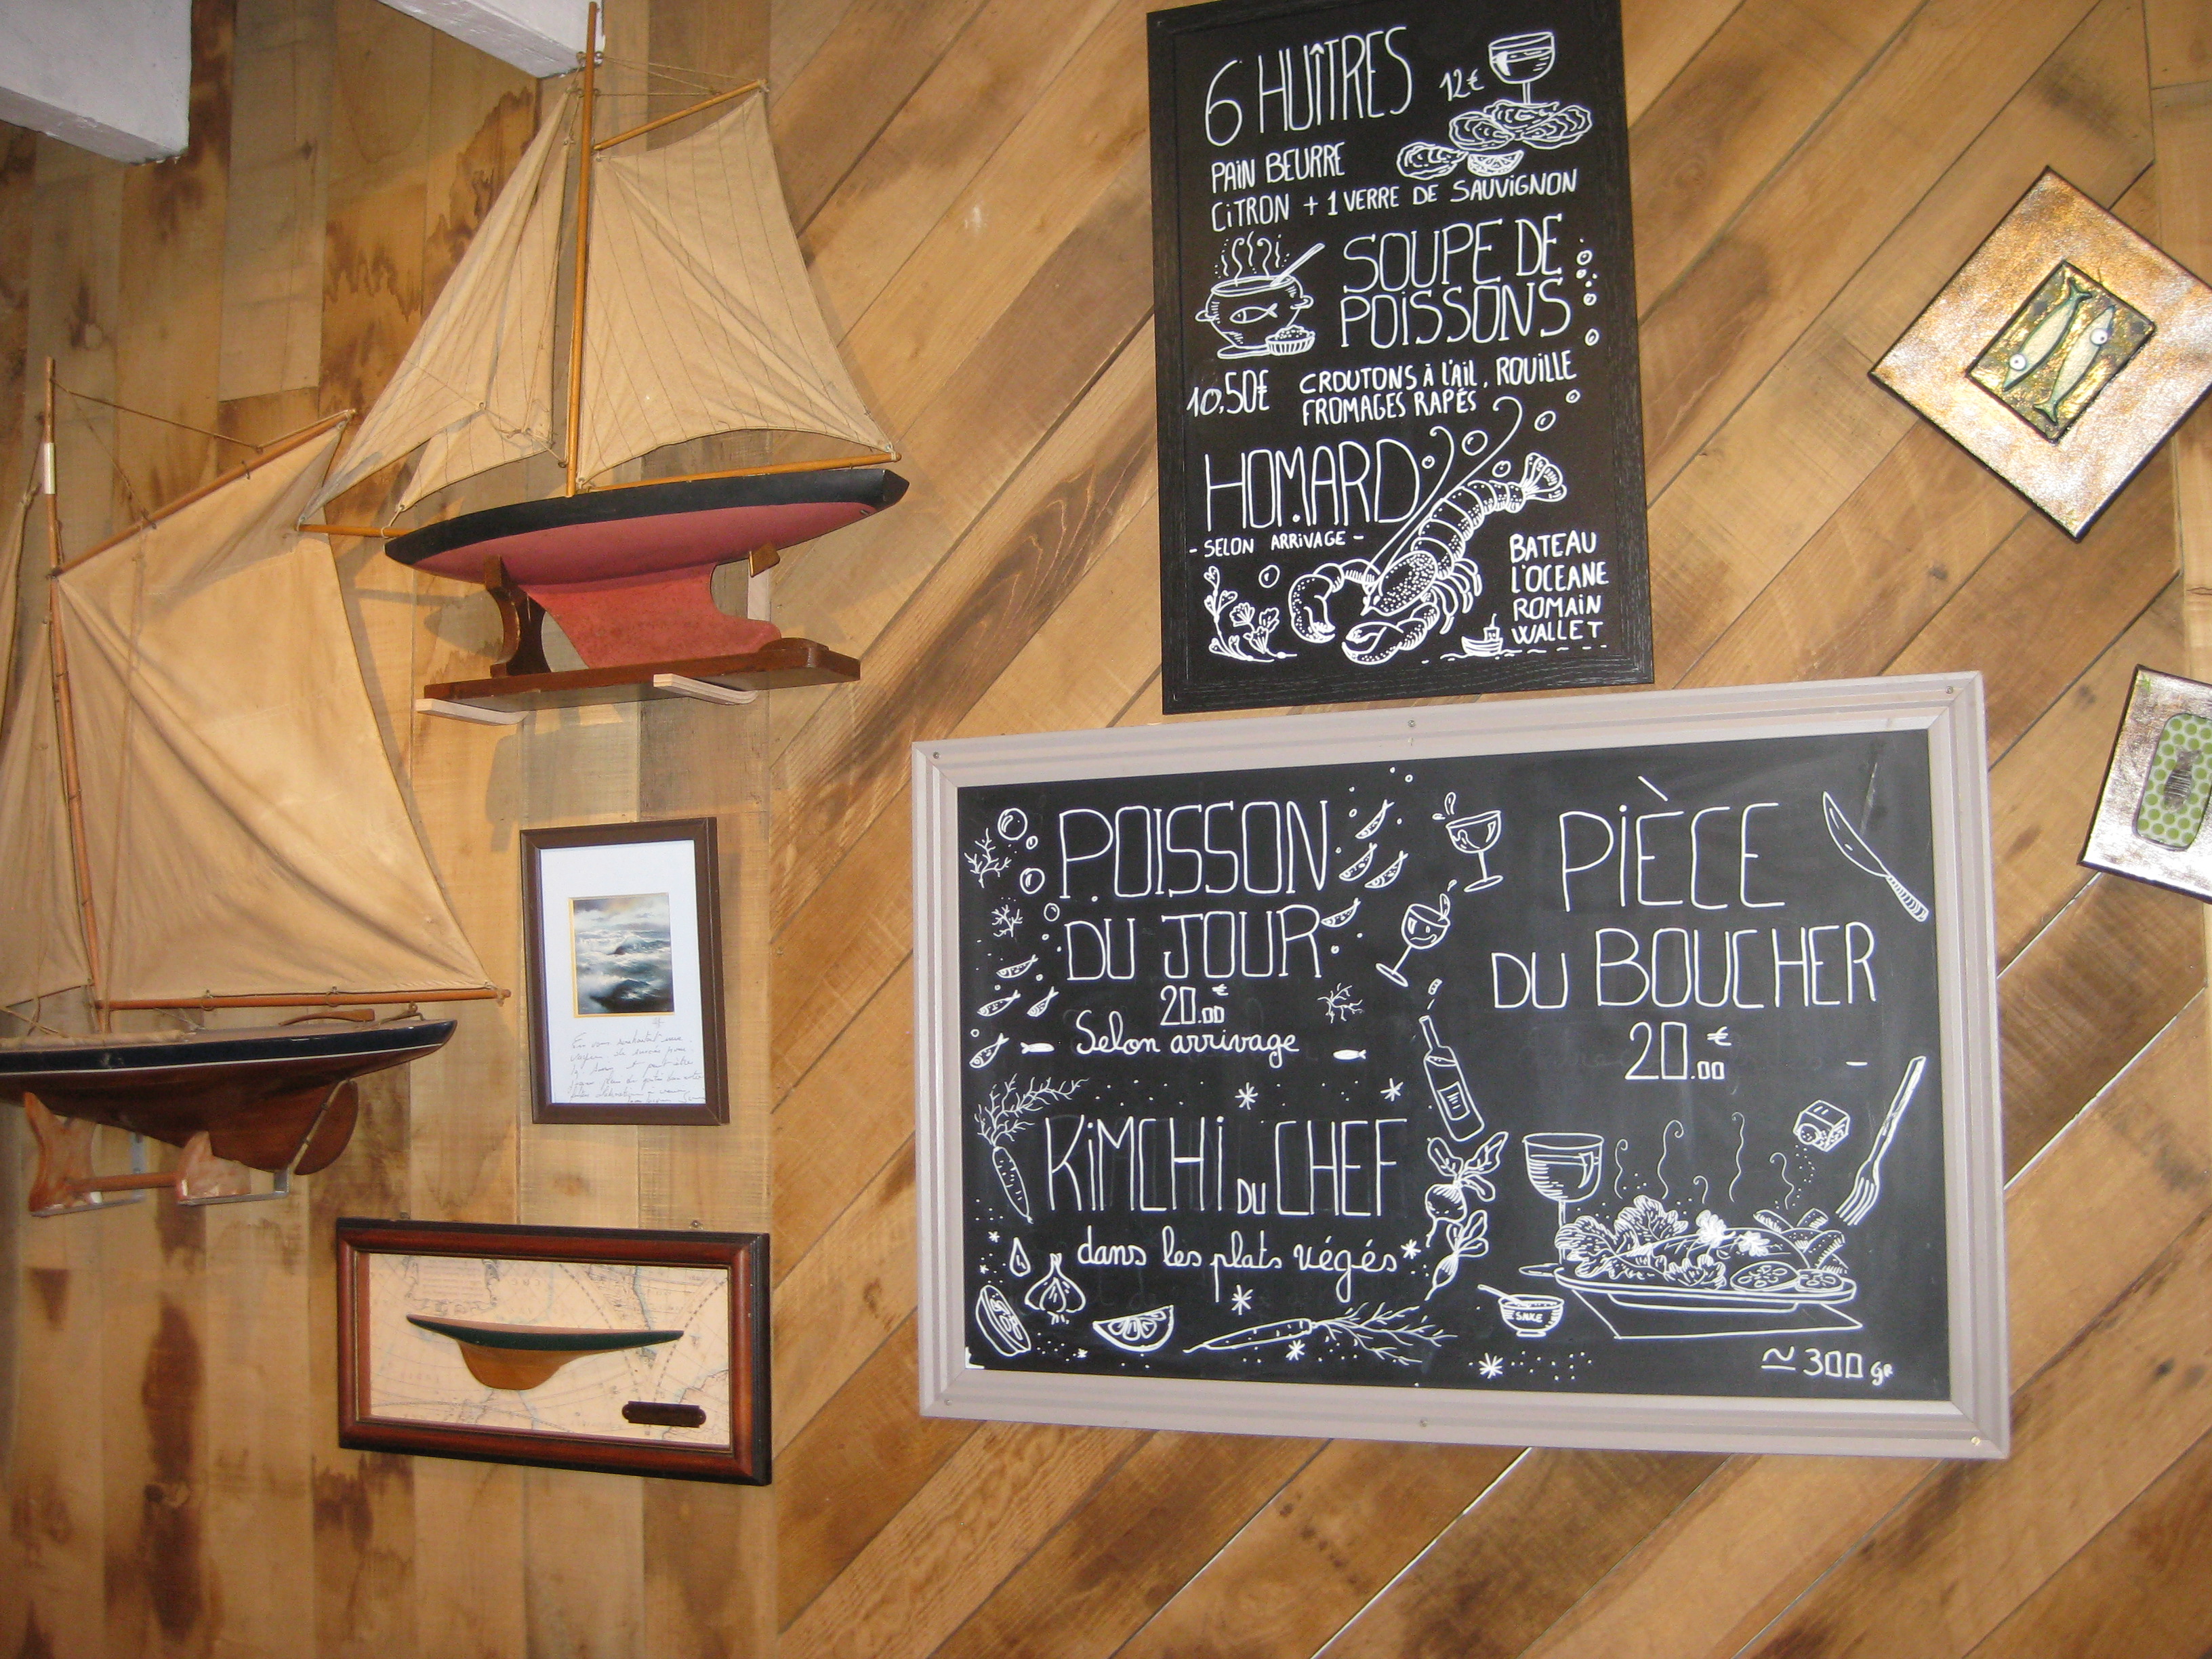 6 HUÎTRES 12€
PAIN BEURRE
CITRON + 1 VERRE DE SAUVIGNON
SOUPE DE
POISSONS
10,50€
CROUTONS À L'AIL, ROUILLE
FROMAGES RAPÉS
HOMARD
- SELON ARRIVAGE -
BATEAU
L'OCEANE
ROMAIN
WALLET
POISSON
DU JOUR
20.00 €
Selon arrivage
KIMCHI DU CHEF
dans les plats végés
PIÈCE
DU BOUCHER
20.00 €
≃ 300 gr